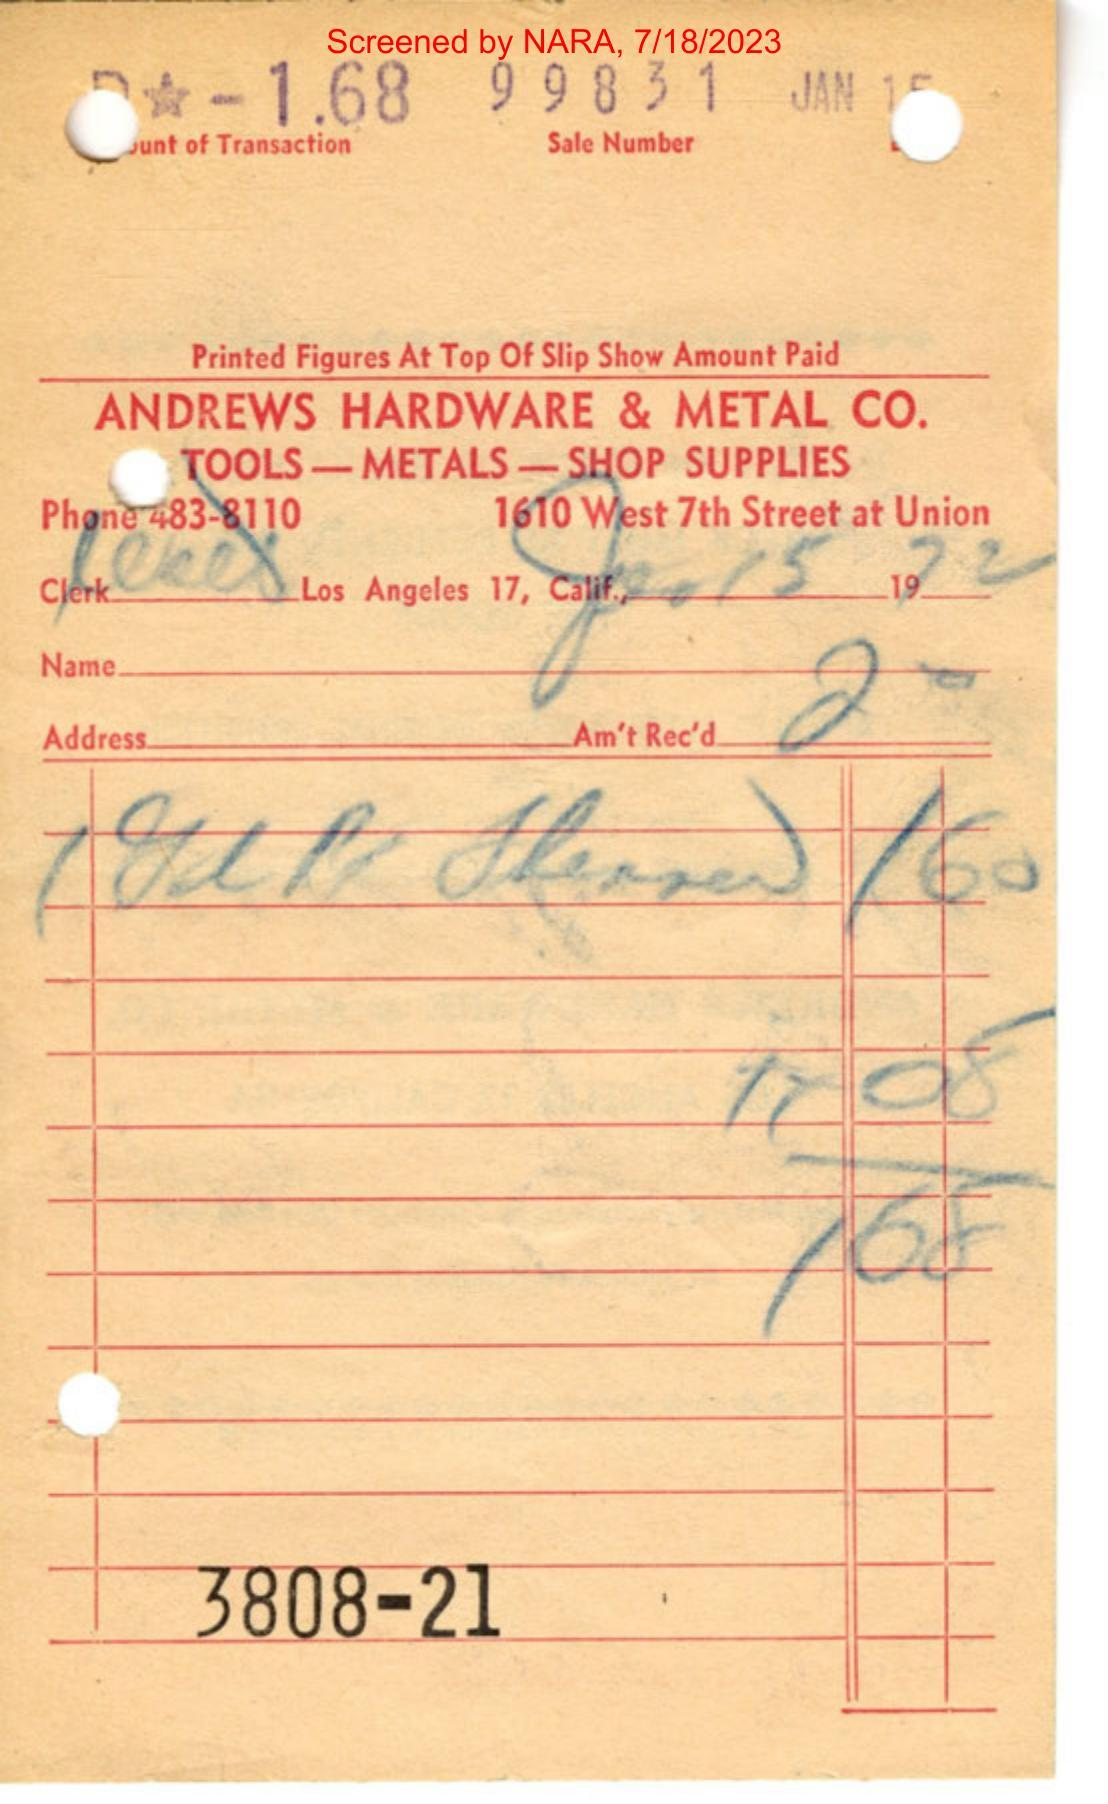 Screened by NARA, 7/18/2023
☆-1.68 99831 JAN 15
ount of Transaction Sale Number
Printed Figures At Top Of Slip Show Amount Paid
ANDREWS HARDWARE & METAL CO.
TOOLS — METALS — SHOP SUPPLIES
Phone 483-8110 1610 West 7th Street at Union
Clerk Los Angeles 17, Calif., Jan 15 1972
Name
Address Am't Rec'd 2 00
1 160
TX 08
168
3808-21